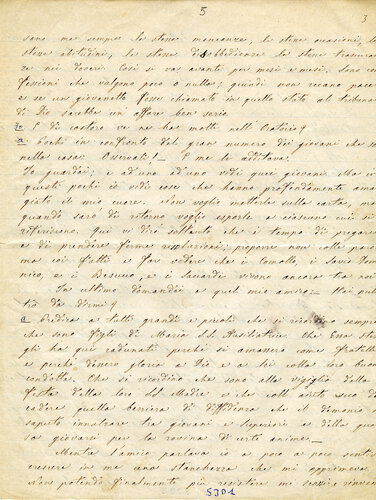 5
3
sono ma sempre le stesse mancanze, le stesse occasioni, le
stesse abitudini, le stesse disobbedienze le stesse trascura
re nei doveri. Così si va avanti per mesi e mesi. Sono con
fessioni che valgono poco o nulla; quindi non recano pace
e se un giovanetto fosse chiamato in quello stato al tribuna
di Dio sarebbe un affare ben serio.
Io E di costoro ve ne ha molti nell'Oratorio?
a. Pochi in confronto del gran numero dei giovani che so
nella casa: Osservati! — E me li additava.
Io guardai; e ad uno ad uno vidi quei giovani. Ma in
questi pochi io vidi cose che hanno profondamente ama
giato il mio cuore. Non voglio metterle sulla carta, ma
quando sarò di ritorno voglio esporle a ciascuno cui si
riferiscono. Qui vi dirò soltanto che è tempo di pregare
e di prendere ferme risoluzioni; proporre non colle parole
ma coi fatti e far vedere che i Comollo, i Savio Dome
nico, e i Besucco, e i Saccardi vivono ancora tra noi
In ultimo domandai a quel mio amico: — Hai nul
tro da dirmi?
a. Predica a tutti grandi e piccoli che si ricordino sempre
che sono figli di Maria SS. Ausiliatrice. Che Essa sto
gli ha qui radunati perchè si amassero come fratelli
e perchè dessero gloria a Dio e a lei colla loro buon
condotta. Che si ricordino che sono alla vigilia della
festa della loro SS. Madre e che coll'aiuto suo de
cadere quella barriera di diffidenza che il demonio
saputo innalzare tra giovani e Superiori e della qua
sa giovarsi per la rovina di certe anime. —
Mentre l'amico parlava io a poco a poco senti
crescere in me una stanchezza che mi opprimeva.
Non potendo finalmente più resistere mi scossi e rinven
S301